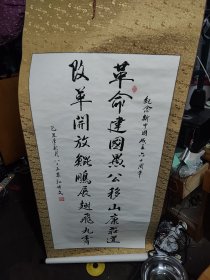 纪念新中国成立六十周年
革命建国愚公移山康庄道
改革开放鲲鹏展翅飞九霄
己丑年